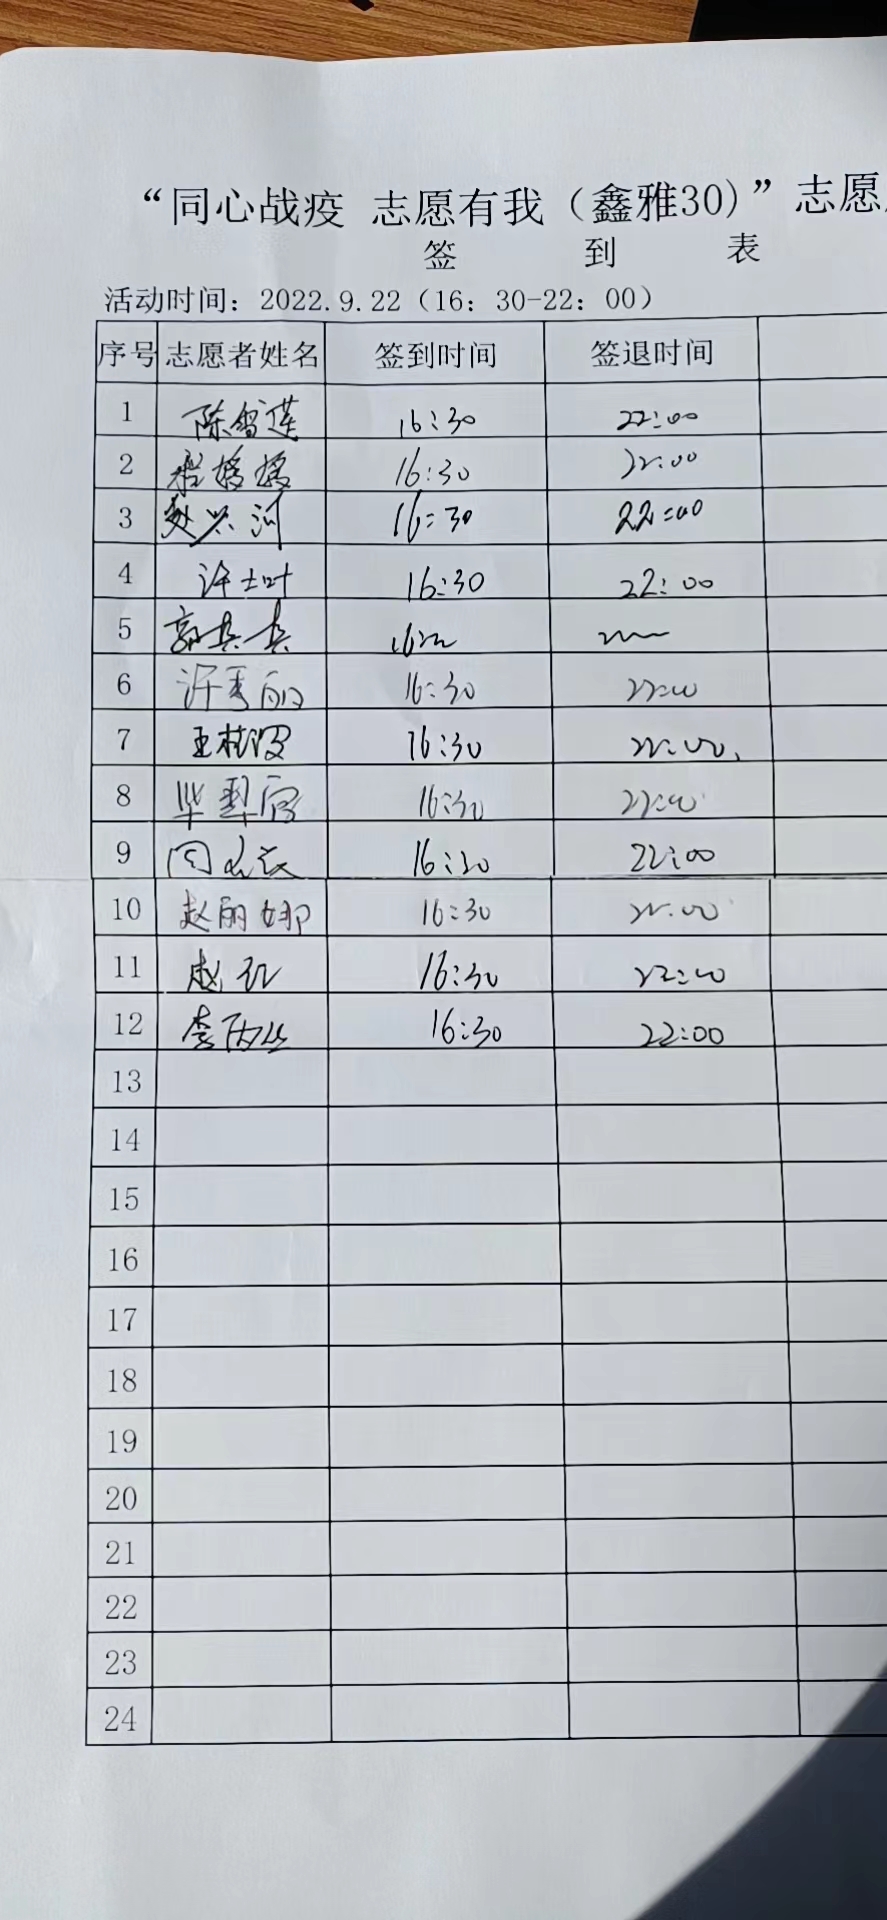 “同心战疫 志愿有我（鑫雅30)”志愿
签 到 表
活动时间：2022.9.22（16：30-22：00）
序号 志愿者姓名 签到时间 签退时间
1 陈雪莲 16:30 22:00
2 16:30 22:00
3 赵兴河 16:30 22:00
4 许士叶 16:30 22:00
5 16
6 许秀丽 16:30 22:00
7 王桂段 16:30 22:00
8 16:30 22:00
9 16:30 22:00
10 赵丽娜 16:30 22:00
11 赵 16:30 22:00
12 李 16:30 22:00
13
14
15
16
17
18
19
20
21
22
23
24